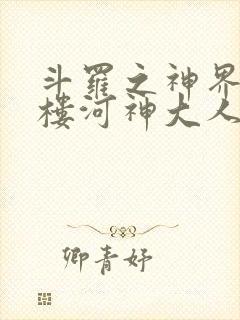 斗羅之神界
樓河神大人
卿青妤